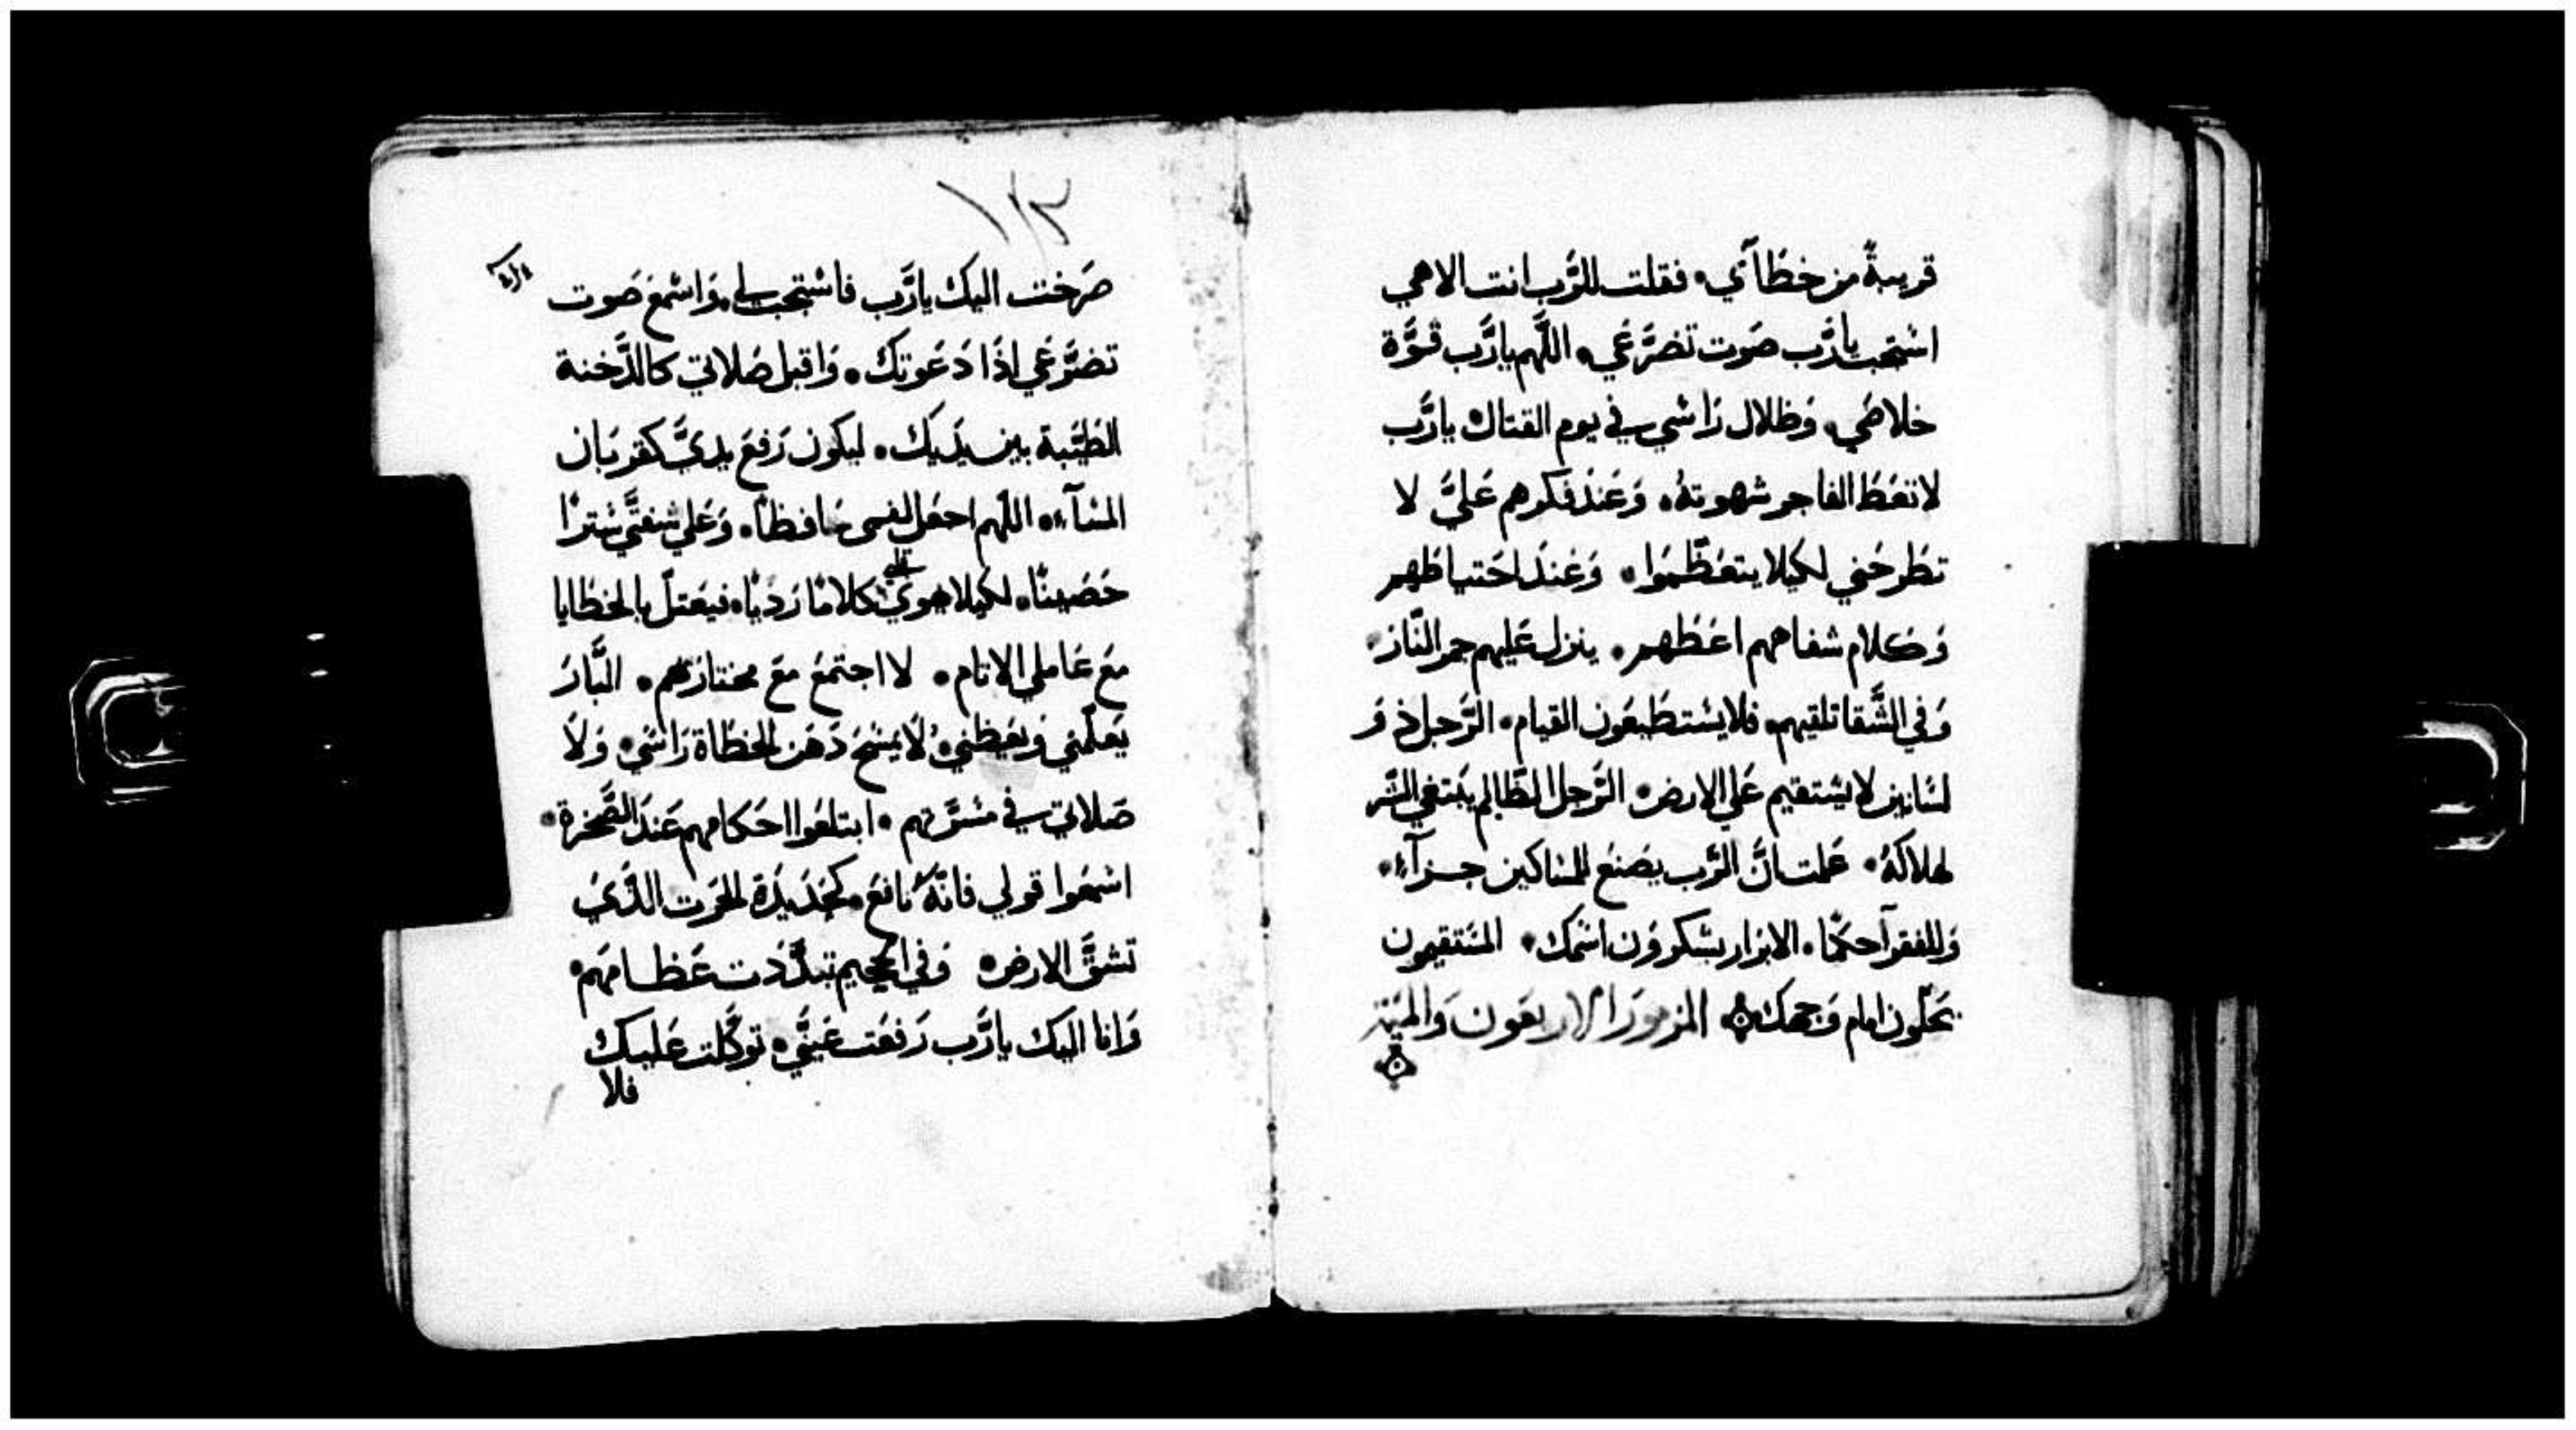 قريبةً من خطآئي. فقلت للرَّب انت الاهي
استجب يارَّب صَوت تضرَّعَي. اللَّهم يارَّب قوَّة
خلاصَي. وَظلال رَاسَي في يوم القتال يارَّب
لا تعَطَ الفاجر شهوتهُ. وَعَندَ فكرهم عَليَّ لا
تطَرحَني لكيلا يتعَظَّموا. وَعَندَ احَتياطَهم
وَكلام شفاههم اعَطَهم. ينزل عَليهم جمر النَّار
وَفي الشَّقا تلقيهم. فلا يستطَيعَون القيام. الرَّجل ذو
لسَانين لا يستقيم عَلي الارض. الرَّجل الظَّالم يبتغي الشَّر
لهلاكهُ. عَلمت انَّ الرَّب يصَنعَ للمسَاكين جزآء.
وَللفقرآ حكمًا. الابرار يشكرون اسَمك. المستقيمون
يحَلّون امام وَجهك المزمور الاربعَون وَالميَة
١١٣
صَرخت اليك يارَّب فاستجب لي. وَاسمعَ صَوت
تضرَّعَي اذَا دَعَوتك. وَاقبل صَلاتي كالدَّخنة
الطَيَّبة بين يدَيك. ليكون رَفعَ يديَّ كقربَان
المسَآء. اللَّهم اجعَل لفمي حَافظًا. وَعَلي شفتَّي سَترًا
حَصَينًا. لكيلا يهوي قلبي كلامًا رَديًا. فيعَتلّ بالخطَايا
معَ عَاملي الاثام. لا اجتمعَ معَ مختارَيهم. البَّارَ
يعَلّمني وَيعَظني. لا يمسَحَ دَهَن الخطَاة رَاسَي. وَلا
صَلاتي في مسَرَّتهم. ابتلعَوا احَكامهم عَندَ الصَّخرة.
اسمعَوا قولي فانَّهُ نافعَ. كحَدَيدَة الحَرت الذَّي
تشقَّ الارض. وَفي الجحيم تبدَّدَت عَظامَهم.
وَانا اليك يارَّب رَفعَت عَينَّي. توكَّلت عَليك
فلا